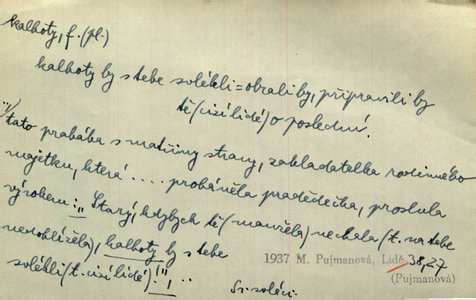 kalhoty, f. (pl.)
kalhoty by s tebe svlékli = obrali by, připravili by
tě (cizí lidé) o poslední.
"tato prabába s matčiny strany, zakladatelka rodinného
majetku, která .... proháněla pradědečka, proslula
výrokem: „Starý, kdybych tě (manžela) nechala (t. na tebe
nedohlížela), kalhoty by s tebe
svlékli (t. cizí lidé)." "..
1937 M. Pujmanová, Lidé 38, 27
(Pujmanová)
Sr. svléci.